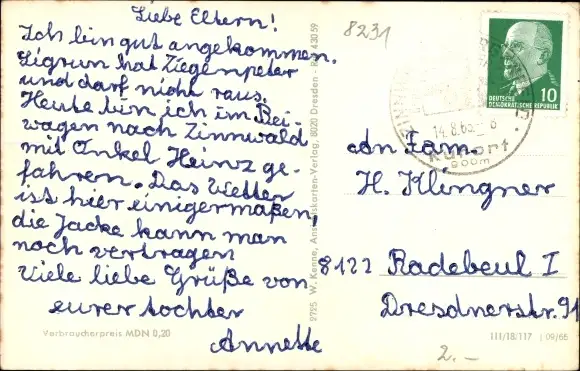 Liebe Eltern!
Ich bin gut angekommen.
Sigrun hat Ziegenpeter
und darf nicht raus.
Heute bin ich im Bei-
wagen nach Zinnwald
mit Onkel Heinz ge-
fahren. Das Wetter
ist hier einigermaßen,
die Jacke kann man
noch vertragen
Viele liebe Grüße von
eurer tochter
Annette
Verbraucherpreis MDN 0,20
2725 W. Kenne, Ansichtskarten-Verlag, 8020 Dresden
43059
8231
DEUTSCHE
DEMOKRATISCHE REPUBLIK
10
14.8.65
Kurort
900m
An Fam.
H. Klingner
8122 Radebeul I
Dresdnerstr. 91
III/18/117 09/65
2.-